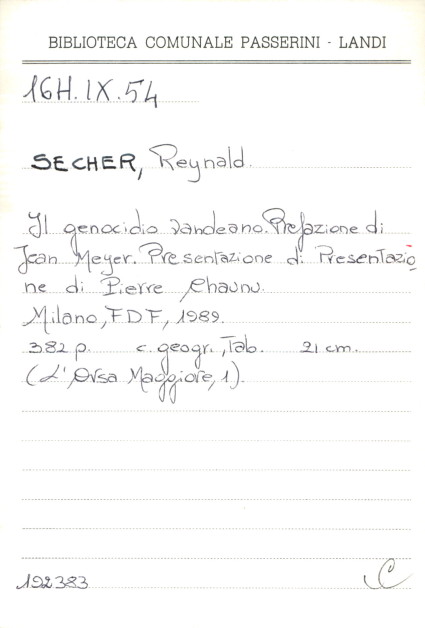 BIBLIOTECA COMUNALE PASSERINI - LANDI
16H.IX.54
SECHER, Reynald.
Il genocidio vandeano. Prefazione di
Jean Meyer. Presentazione di Presentazio
ne di Pierre Chaunu.
Milano, FDF, 1989.
382 p. c. geogr., Tab. 21 cm.
(L'Orsa Maggiore, 1).
192383 C